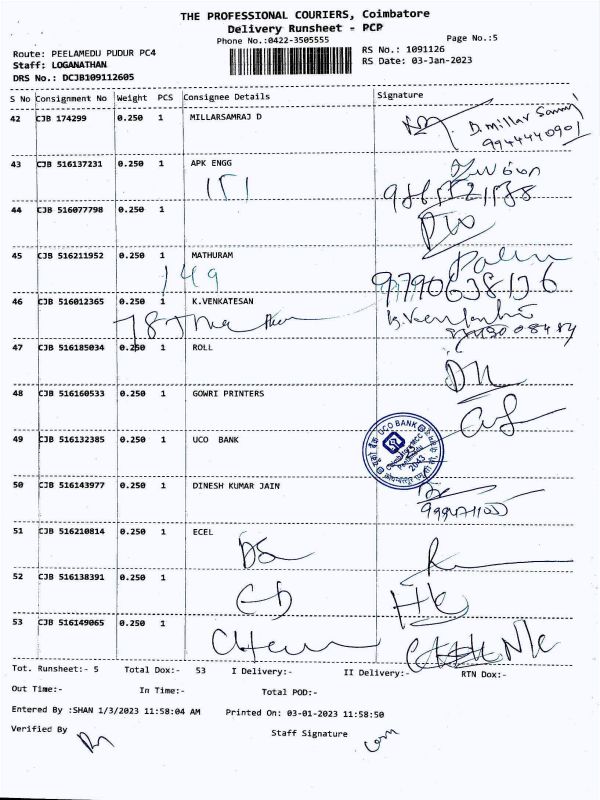 THE PROFESSIONAL COURIERS, Coimbatore
Delivery Runsheet - PCP
Phone No.:0422-3505555
Page No.:5
Route: PEELAMEDU PUDUR PC4
RS No.: 1091126
Staff: LOGANATHAN
RS Date: 03-Jan-2023
DRS No.: DCJB109112605
S No Consignment No Weight PCS Consignee Details Signature
42 CJB 174299 0.250 1 MILLARSAMRAJ D
D.millar Samraj
9944440901
43 CJB 516137231 0.250 1 APK ENGG
151
44 CJB 516077798 0.250 1
45 CJB 516211952 0.250 1 MATHURAM
149
46 CJB 516012365 0.250 1 K.VENKATESAN
47 CJB 516185034 0.250 1 ROLL
48 CJB 516160533 0.250 1 GOWRI PRINTERS
49 CJB 516132385 0.250 1 UCO BANK
UCO BANK
2043
50 CJB 516143977 0.250 1 DINESH KUMAR JAIN
51 CJB 516210814 0.250 1 ECEL
52 CJB 516138391 0.250 1
53 CJB 516149065 0.250 1
Tot. Runsheet:- 5 Total Dox:- 53 I Delivery:- II Delivery:- RTN Dox:-
Out Time:- In Time:- Total POD:-
Entered By :SHAN 1/3/2023 11:58:04 AM Printed On: 03-01-2023 11:58:50
Verified By Staff Signature